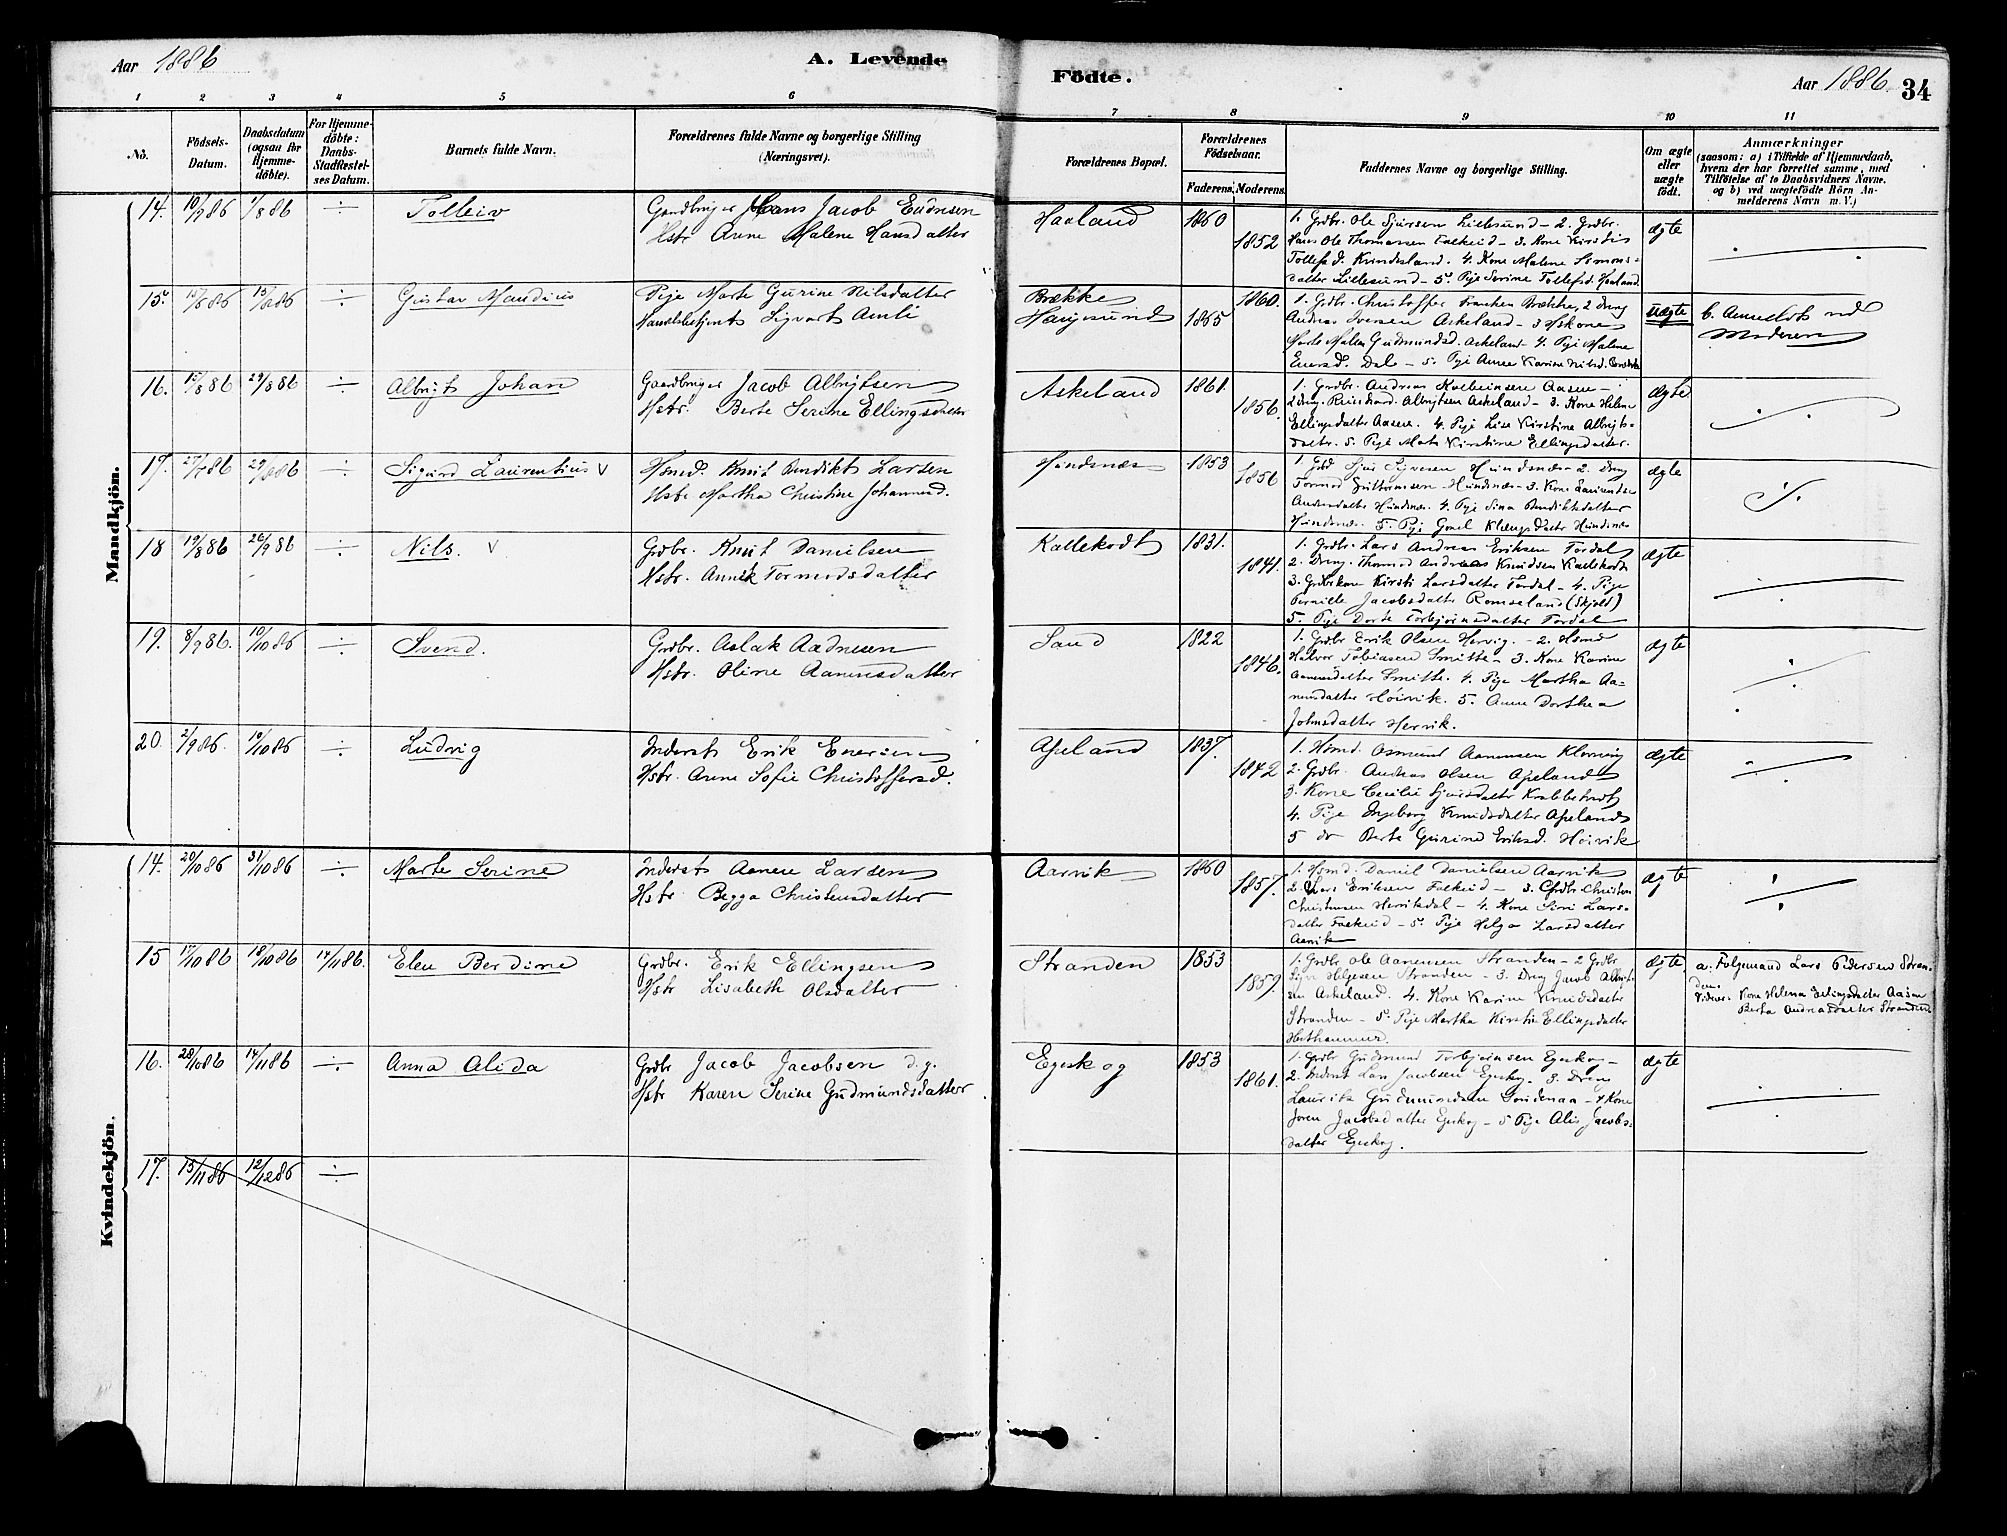 Aar 1886
A. Levende
Födte.
Aar 1886.
34
1 2 3 4 5 6 7 8 9 10 11
No.
Födsels-
Datum.
Daabsdatum
(ogsaa for
Hjemme-
döbte).
For Hjemme-
döbte:
Daabs-
Stadfæstel-
ses Datum.
Barnets fulde Navn.
Forældrenes fulde Navne og borgerlige Stilling
(Næringsvei).
Forældrenes Bopæl.
Forældrenes
Födselsaar.
Faderens. Moderens.
Faddernes Navne og borgerlige Stilling.
Om ægte
eller
uægte
födt.
Anmærkninger
(saasom: a) i Tilfælde af Hjemmedaab,
hvem der har forrettet samme, med
Tilföielse af to Daabsvidners Navne,
og b) ved uægtefödte Börn An-
melderens Navn m. V.)
Mandkjön.
14. 10/7 86 1/8 86 ÷ Tolleiv
Gaardbruger Hans Jacob Endresen
Hstr Anne Malene Hansdatter
Haaland 1860 1852
1. Grdbr. Ole Sjursen Lillesund – 2. Grdbr.
Hans Ole Thomassen Falkeid – 3. Kone Kirsti
Tollefsd. Kvindesland. 4. Kone Malene Simons-
datter Lillesund – 5. Pige Serine Tollefsd. Haaland
ægte
15. 15/8 86 ÷ Gustav Mandius
Pige Marte Gurine Nilsdatter
Handelsbetjent Sigvart Amli
Brække
Haugesund 1865 1860.
1. Grdbr. Christoffer Brække, 2 Dreng
Andreas Iversen Askeland – 3 Kone
Marte Malene Gudmundsd. Askeland – 4. Pige Malene
Enersd. Dal – 5. Pige Anne Karine Nilsd.
uægte
b. Anmeldt ved
Moderen
16. 15/8 86 29/8 86 ÷ Albrigt Johan
Gaardbruger Jacob Albrigtsen
Hstr. Berte Serine Ellingsdatter
Askeland 1861. 1856.
1. Grdbr. Andreas Kolbeinsen Aasen –
2 Dreng. Reinhard Albrigtsen Askeland – 3. Kone Helene
Ellingsdatter Aasen. 4. Pige Lise Kirstine Albrigts-
datter. 5. Pige Marta Kirstine Ellingsdatter.
ægte
17. 27/7 86 29/8 86 ÷ Sigurd Laurentius v
Hsmd. Knut Bendikt Larsen
Hstr Martha Christine Johannesd.
Hundsnæs 1853 1856
1. Grdbr Sjur Hundsnæs – 2. Dreng
Tormod Guttormsen Hundsnæs – 3. Kone Laurentse
Andersdatter Hundsnæs. 4. Pige Sina Bendiktsdatter
Hundsnæs. 5. Pige Gurel Klængsdatter Hundsnæs
ægte
18 19/8 86 26/9 86 ÷ Nils. v
Grdbr. Knut Danielsen
Hstr. Annik Tormodsdatter
Kallekodt 1831. 1841.
1. Grdbr. Lars Andreas Eriksen Tørdal
2. Dreng. Thomas Andreas Knudsen Kallekodt
3. Grdbrkone Kirsti Larsdatter Førdal – 4. Pige
Pernille Jacobsdatter Romseland (Skjold)
5. Pige Dorte Torbjørnsdatter Førdal
ægte
19. 8/9 86. 10/10 86 ÷ Svend.
Grdbr. Aslak Aadnesen
Hstr. Oline Aanensdatter
Sand 1822 1846.
1. Grdbr Erik Olsen Hervig. – 2. Hsmd
Halvor Tobiasen Smitte – 3. Kone Karine
Aanensdatter Smitte. 4. Pige Martha Aa-
nensdatter Høivik. 5. Anne Dorthea
Johnsdatter Hervik.
ægte
20. 2/9 86. 10/10 86 ÷ Ludvig
Inderst Erik Enersen
Hstr. Anne Sofie Christoffersd.
Apeland 1837. 1842
1. Hsmd. Osmund Aanensen Kloving
2. Grdbr. Andreas Olsen Apeland
3. Kone Cecilie Sjursdatter Krabbetveit
4. Pige Ingeborg Knudsdatter Apeland
5 do Berte Gurine Eriksd. Høivik
ægte
Kvindekjön.
14. 20/10 86 31/10 86 ÷ Marte Serine
Inderst Aanen Larsen
Hstr Begga Christensdatter
Aarvik 1860 1857.
1. Hsmd. Daniel Danielsen Aarvik
2. Lars Eriksen Falkeid – 3. Grdbr. Christen
Christensen Hervikdal – 4. Kone Siri Lars-
datter Falkeid – 5. Pige Helga Larsdatter
Aarvik
ægte
15 17/10 86 18/10 86 14/11 86. Elen Berdine
Grdbr. Erik Ellingsen
Hstr Lisabeth Olsdatter
Stranden 1853 1859.
1. Grdbr Ole Aanensen Stranden – 2 Grdbr
Helgesen Stranden – 3. Dreng Jacob Albrigt-
sen Askeland. 4. Kone Karine Knudsdatter
Stranden – 5. Pige Martha Kirstine Ellingsdatter
Hesthammer.
ægte.
a. Følgemand Lars Pedersen Stran-
den.
Vidner. Kone Helene Ellingsdatter Aasen
Berta Andreasdatter Stranden
16. 28/10 86 14/11 86 ÷ Anna Alida
Grdbr Jacob Jacobsen d.y.
Hstr Karen Serine Gudmundsdatter
Egeskog 1853 1861.
1. Grdbr Gudmund Torbjørnsen Egeskog –
2. Inderst Lars Jacobsen Egeskog. 3. Dreng
Laurits Gudmundsen – 4 Kone
Joren Jacobsdatter Egeskog – 5 Pige Alis Jacobs-
datter Egeskog.
ægte
17. 15/11 86 12/12 86 ÷